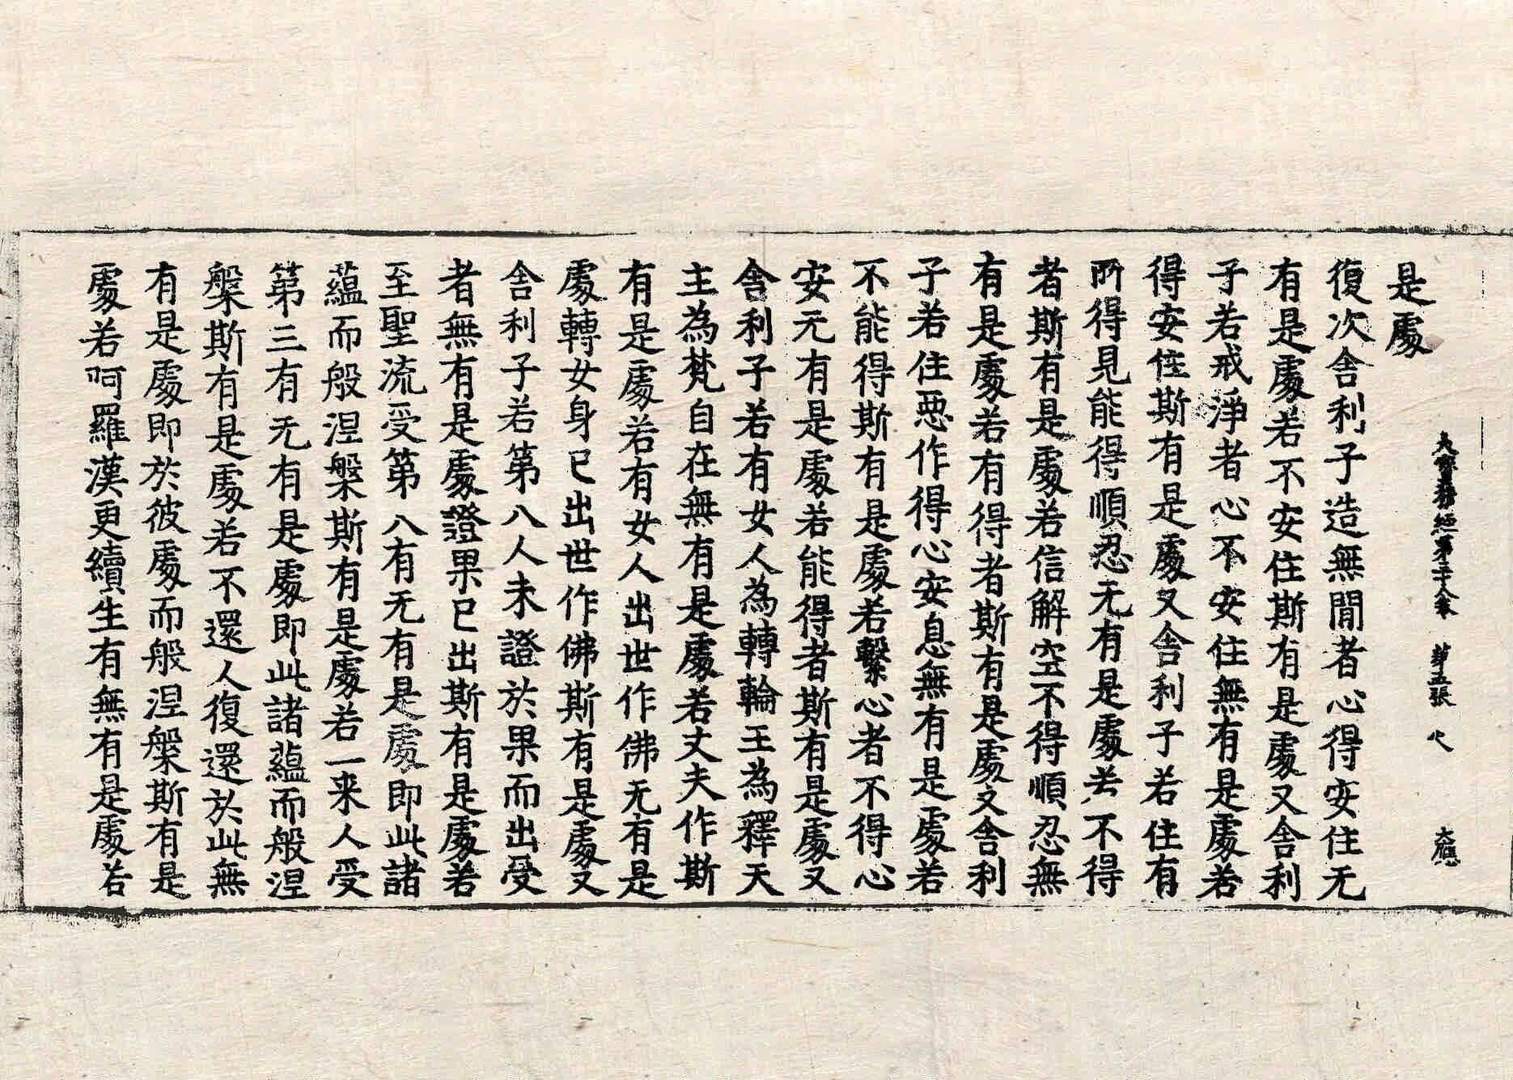 大寶積經第三十八卷　第五張　火　大應
是處
復次舍利子造無間者心得安住无
有是處若不安住斯有是處又舍利
子若戒淨者心不安住無有是處若
得安住斯有是處又舍利子若住有
所得見能得順忍无有是處若不得
者斯有是處若信解空不得順忍無
有是處若有得者斯有是處又舍利
子若住惡作得心安息無有是處若
不能得斯有是處若繫心者不得心
安无有是處若能得者斯有是處又
舍利子若有女人為轉輪王為釋天
主為梵自在無有是處若丈夫作斯
有是處若有女人出世作佛无有是
處轉女身已出世作佛斯有是處又
舍利子若第八人未證於果而出受
者無有是處證果已出斯有是處若
至聖流受第八有无有是處即此諸
蘊而般涅槃斯有是處若一来人受
第三有无有是處即此諸蘊而般涅
槃斯有是處若不還人復還於此無
有是處即於彼處而般涅槃斯有是
處若呵羅漢更續生有無有是處若